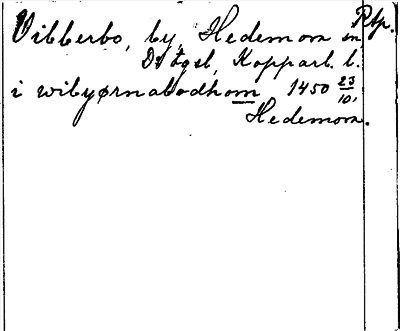 Rtp.
Vibberbo, by, Hedemora sn,
Dr tgsl, Kopparb. l.
i wibyørnabodhom 1450 23/10,
Hedemora.